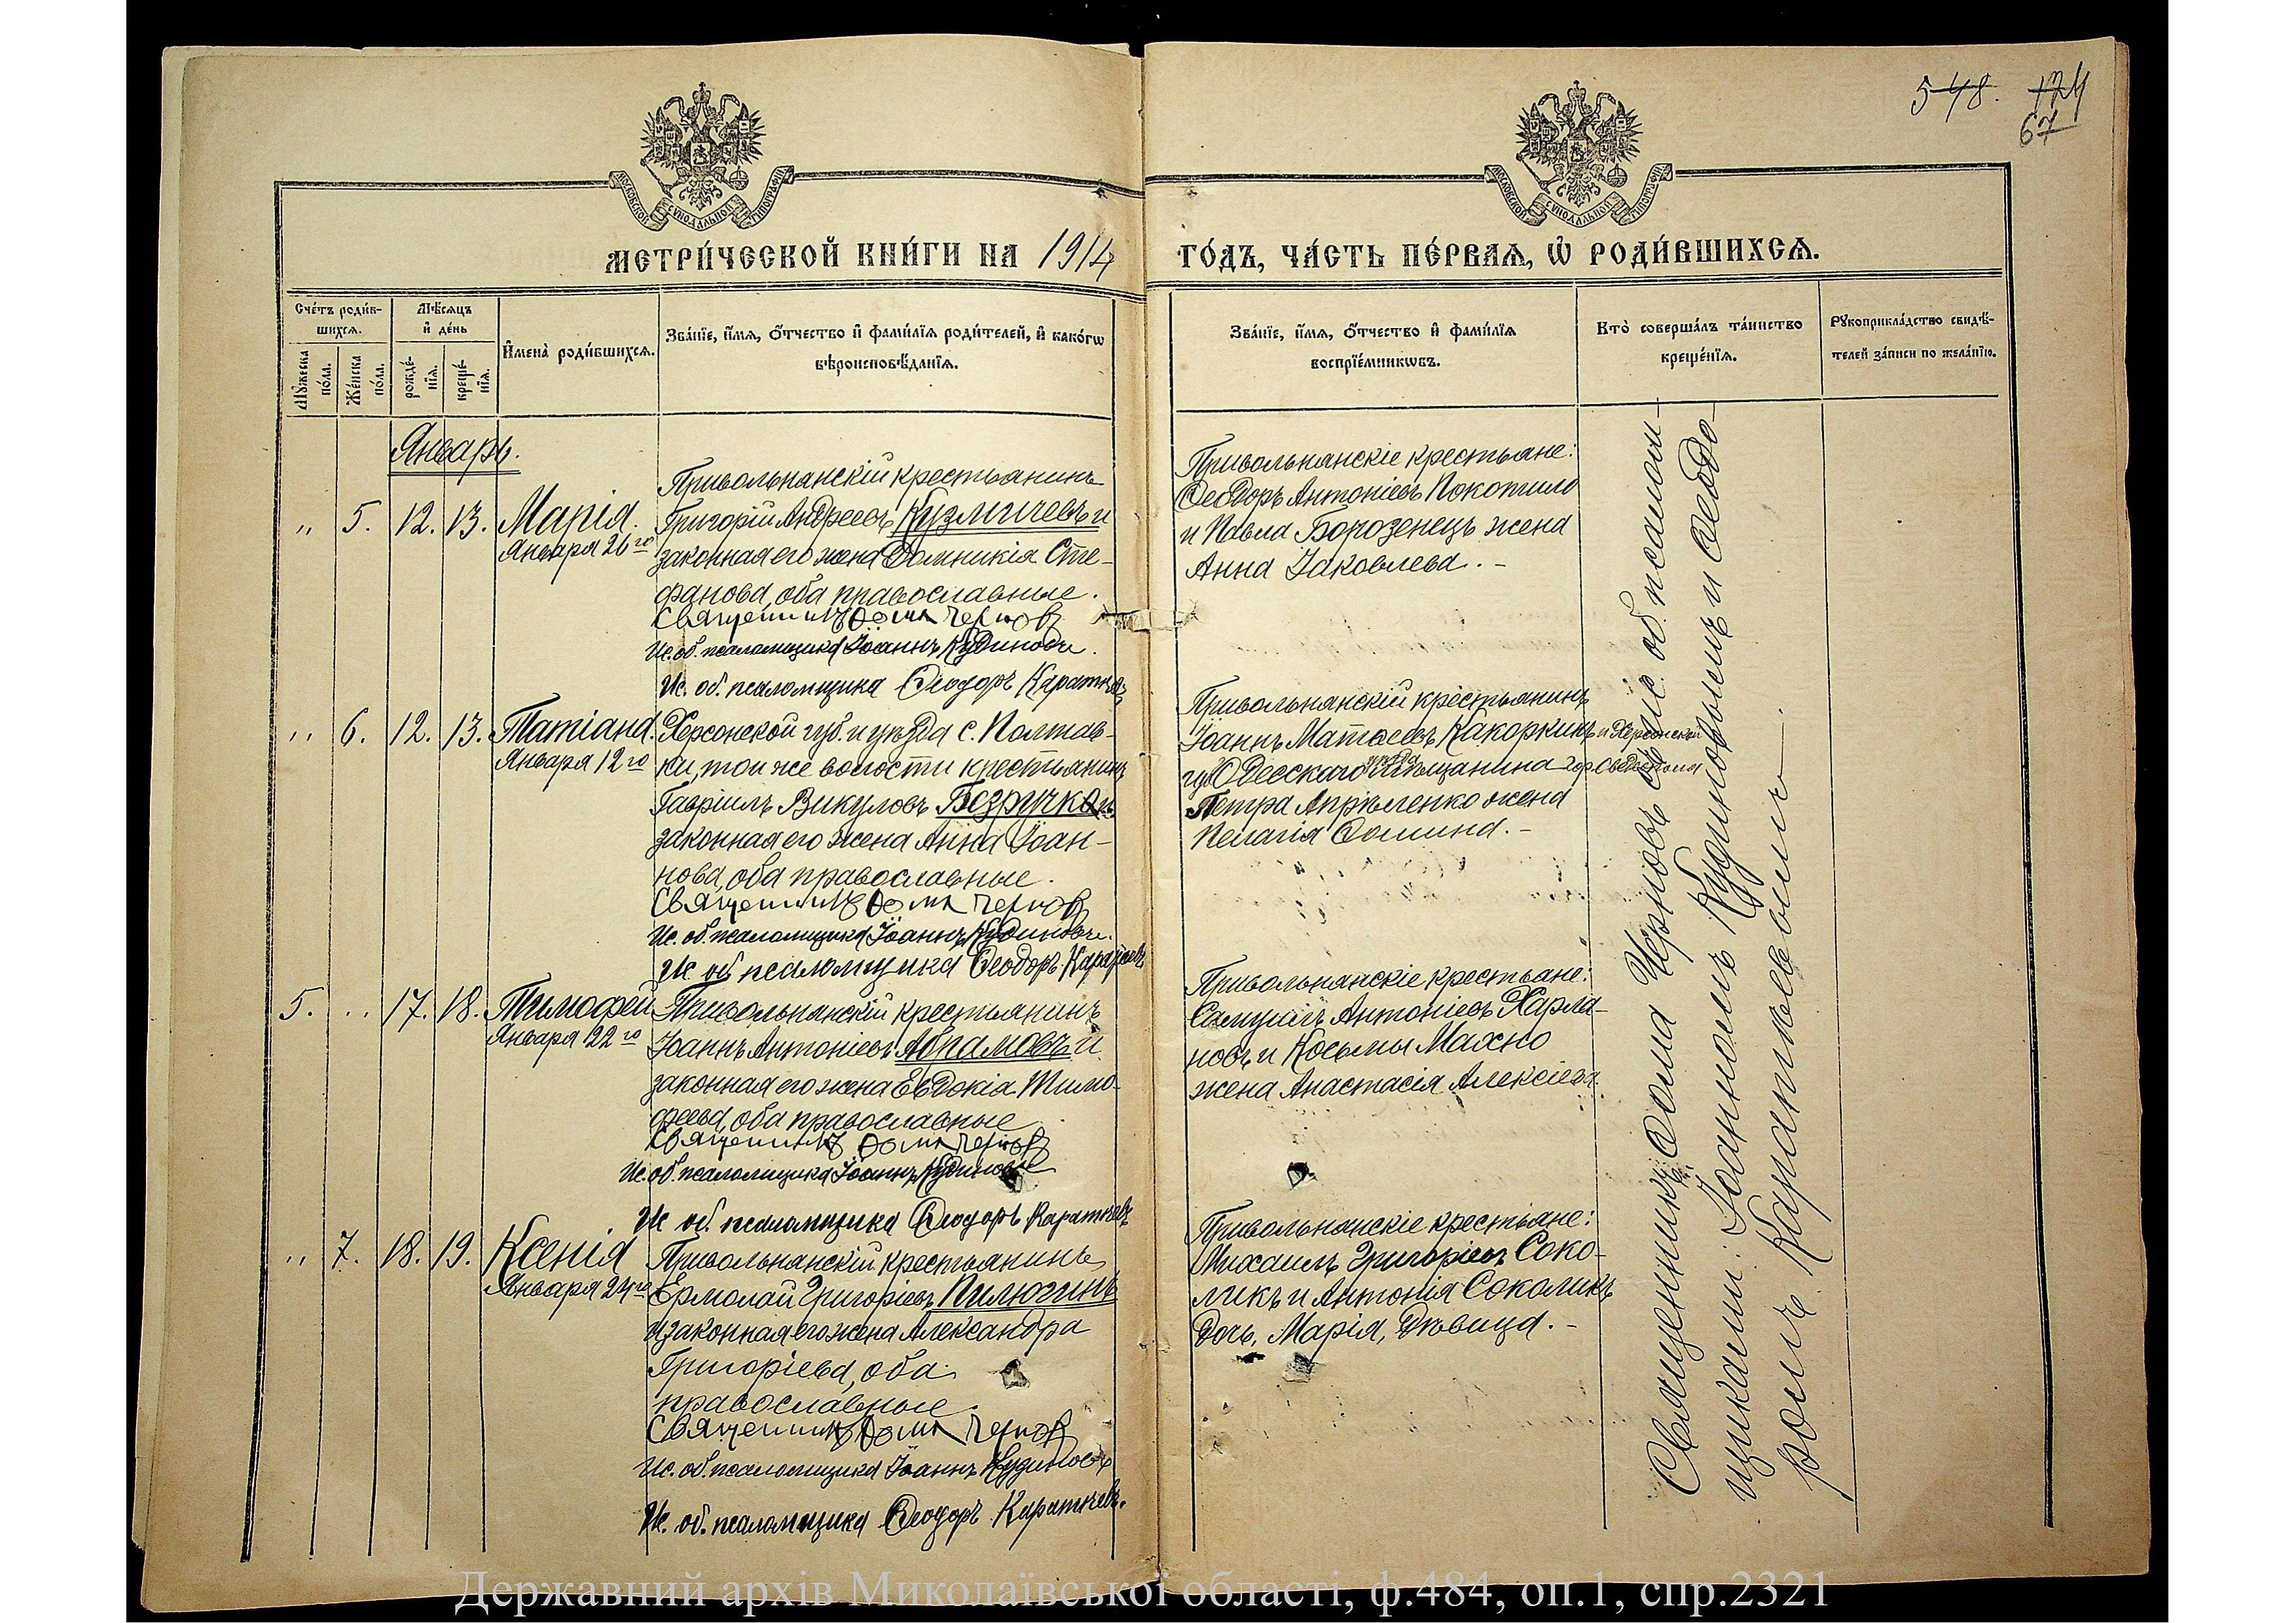 548. 174
67
МОСКОВСКОЙ СѴНОДАЛЬНОЙ ТИПОГРАФІИ
МОСКОВСКОЙ СѴНОДАЛЬНОЙ ТИПОГРАФІИ
МЕТРИ́ЧЕСКОЙ КНИ́ГИ НА 1914 ГО́ДЪ, ЧА́СТЬ ПЕ́РВАѦ, Ѡ҆ РОДИ́ВШИХСѦ.
Сче́тъ роди́в-
шихсѧ.
Мꙋ́жеска по́ла.
Же́нска по́ла.
Мѣ́сѧцъ
и҆ де́нь
рожде́-
нїѧ.
креще́-
нїѧ.
И҆мена̀ роди́вшихсѧ.
Зва́нїе, и҆́мѧ, ѻ҆́тчество и҆ фами́лїѧ роди́телей, и҆ како́гѡ
вѣроисповѣ́данїѧ.
Зва́нїе, и҆́мѧ, ѻ҆́тчество и҆ фами́лїѧ
воспрїе́мникѡвъ.
Кто̀ соверша́лъ та́инство
креще́нїѧ.
Рꙋкоприкла́дство свидѣ́-
телей за́писи по жела́нїю.
Январь.
„ 5. 12. 13. Марія.
Января 26го
Привольнанскій крестьянинъ
Григорій Андреевъ Кузмичевъ и
законная его жена Домникія Сте-
фанова, оба православные.
Священникъ Ѳома Черновъ
Ис. об. псаломщика Іоаннъ Кудиновъ.
Ис. об. псаломщика Ѳеодоръ Каратѣевъ
Привольнанскіе крестьяне:
Ѳеодоръ Антоніевъ Покотило
и Павла Борозенецъ жена
Анна Іаковлева. –
„ 6. 12. 13. Татіана.
Января 12го
Херсонской губ. и уѣзда с. Полтав-
ки, той же волости крестьянинъ
Гавріилъ Викуловъ Безручко и
законная его жена Анна Іоан-
нова, оба православные.
Священникъ Ѳома Черновъ
Ис. об. псаломщика Іоаннъ Кудиновъ.
Ис об псаломщика Ѳеодоръ Каратѣевъ
Привольнанскій крестьянинъ
Іоаннъ Матѳеевъ Какоркинъ и Херсонской
губ Одесскаго уѣзда мѣщанина гор Овидіополя
Петра жена
Пелагія Ѳомина. –
5. „ 17. 18. Тимоѳей
Января 22го
Привольнанскій крестьянинъ
Іоаннъ Антоніевъ Абрамовъ и
законная его жена Евдокія Тимо-
феева, оба православные
Священникъ Ѳома Черновъ
Ис. об. псаломщика Іоаннъ Кудиновъ
Ис об. псаломщика Ѳеодоръ Каратѣевъ
Привольнанскіе крестьяне:
Самуилъ Антоніевъ Харла-
новъ и Косьмы Махно
жена Анастасія Алексіева.
„ 7. 18. 19. Ксенія
Января 24го
Привольнанскій крестьянинъ
Ермолай Григоріевъ Пилюгинъ
и законная его жена Александра
Григоріева, оба
православные.
Священникъ Ѳома Черновъ
Ис. об. псаломщика Іоаннъ Кудиновъ
Ис. об. псаломщика Ѳеодоръ Каратѣевъ.
Привольнанскіе крестьяне:
Михаилъ Григоріевъ Соко-
ликъ и Антонія Соколикъ
дочь, Марія, дѣвица. –
Священникъ Ѳома Черновъ съ ис. об. псалом-
щиками: Іоанномъ Кудиновымъ и Ѳеодо-
ромъ Каратѣевымъ.
Державний архів Миколаївської області, ф.484, оп.1, спр.2321